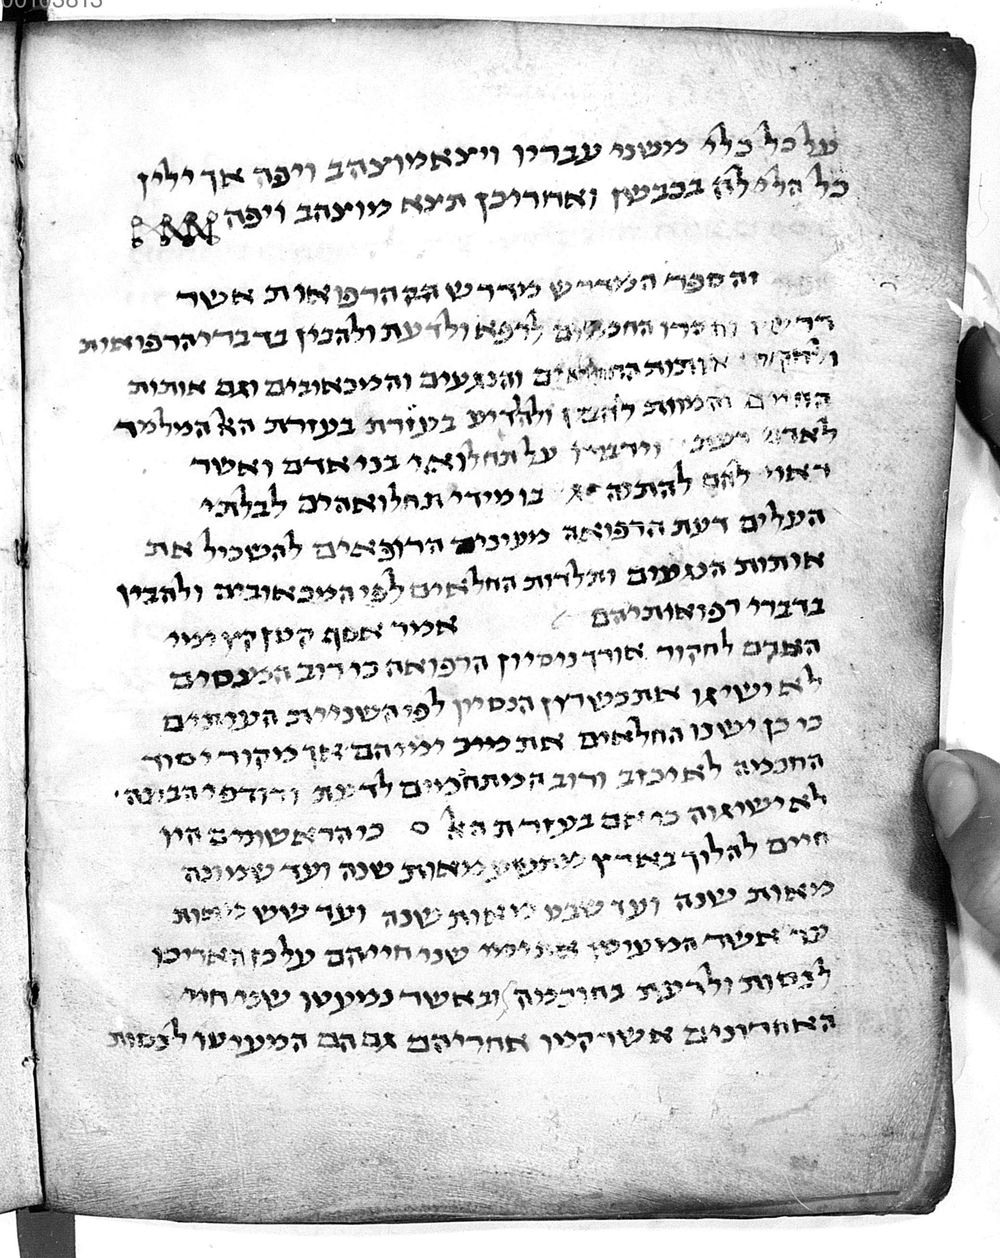 00105813
על כל כלי משני עבריו ויצא מוצהב ויפה אך ילין
כל הלילה בכבשן ואחריכן תצא מוצהב ויפה
זה ספר המדרש מדרש הרפואות אשר
החכמים לרפא ולדעת ולהבין בדברי הרפואות
אותות והנגעים והמכאובים וגם אותות
והמוות להבין ולהודיע בעזרת הא המלמד
לאדם דעת וידברו על תחלואי בני אדם ואשר
ראוי להם בו מידי תחלואהים לבלתי
העלים דעת הרפואה מעיני הרופאים להשכיל את
אותות הנגעים ותלדות החלאים לפי המכאובים ולהבין
בדברי רפואותיהם אמר אסף קטן קצ ימי
האדם לחקור אורך ניסיון הרפואה כי רוב המנסים
לא ישיגו את כשרון הנסיון לפי השניית העיתים
כי כן ישנו החלאים את ימיהם אך מקור יסוד
החכמה לא יכזב ורוב המתחכמים לדעת ורודפי הבינה
לא ישיגוה כי אם בעזרת הא כי הראשונים היו
חיים להלוך בארץ מתשע מאות שנה ועד שמונה
מאות שנה ועד שבע מאות שנה ועד שש מאות
עד אשר המעיטו שני חייהם על כן האריכו
לנסות ולדעת בחוכמה ובאשר נמעטו שני חיי
האחרונים אשר קמו אחריהם גם הם המעיטו לנסות